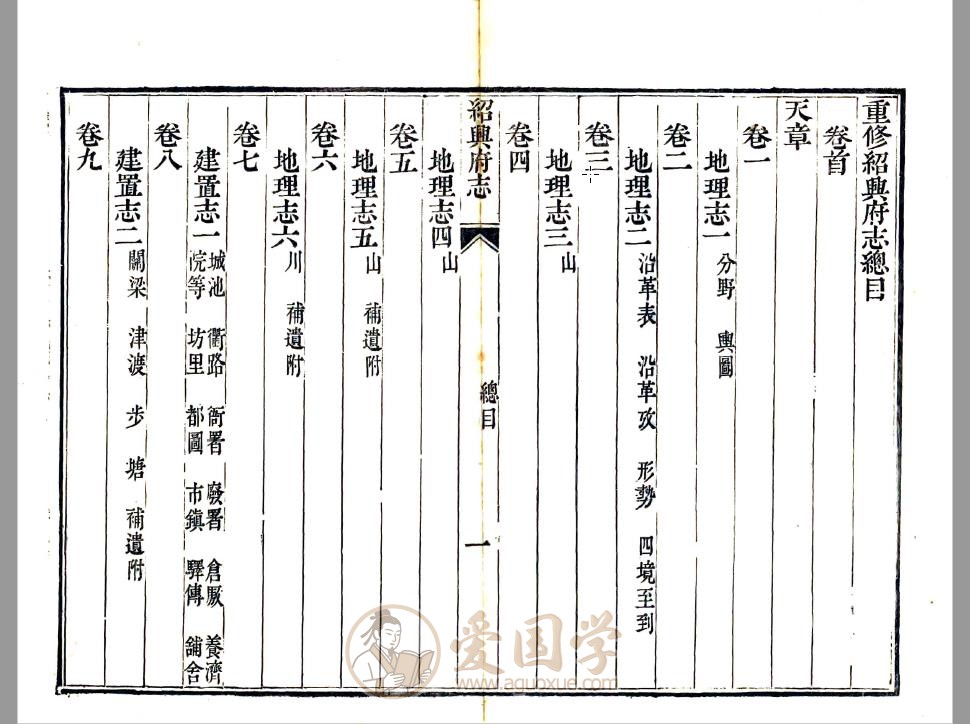 重修紹興府志總目
卷首
天章
卷一
地理志一 分野 輿圖
卷二
地理志二 沿革表 沿革攷 形勢 四境至到
卷三
地理志三 山
卷四
紹興府志 總目 一
地理志四 山
卷五
地理志五 山 補遺附
卷六
地理志六 川 補遺附
卷七
建置志一 城池 衢路 衙署 廢署 倉厫 養濟
院等 坊里 都圖 市鎮 驛傳 舖舍
卷八
建置志二 關梁 津渡 步 塘 補遺附
卷九
爱国学
www.aguoxue.com